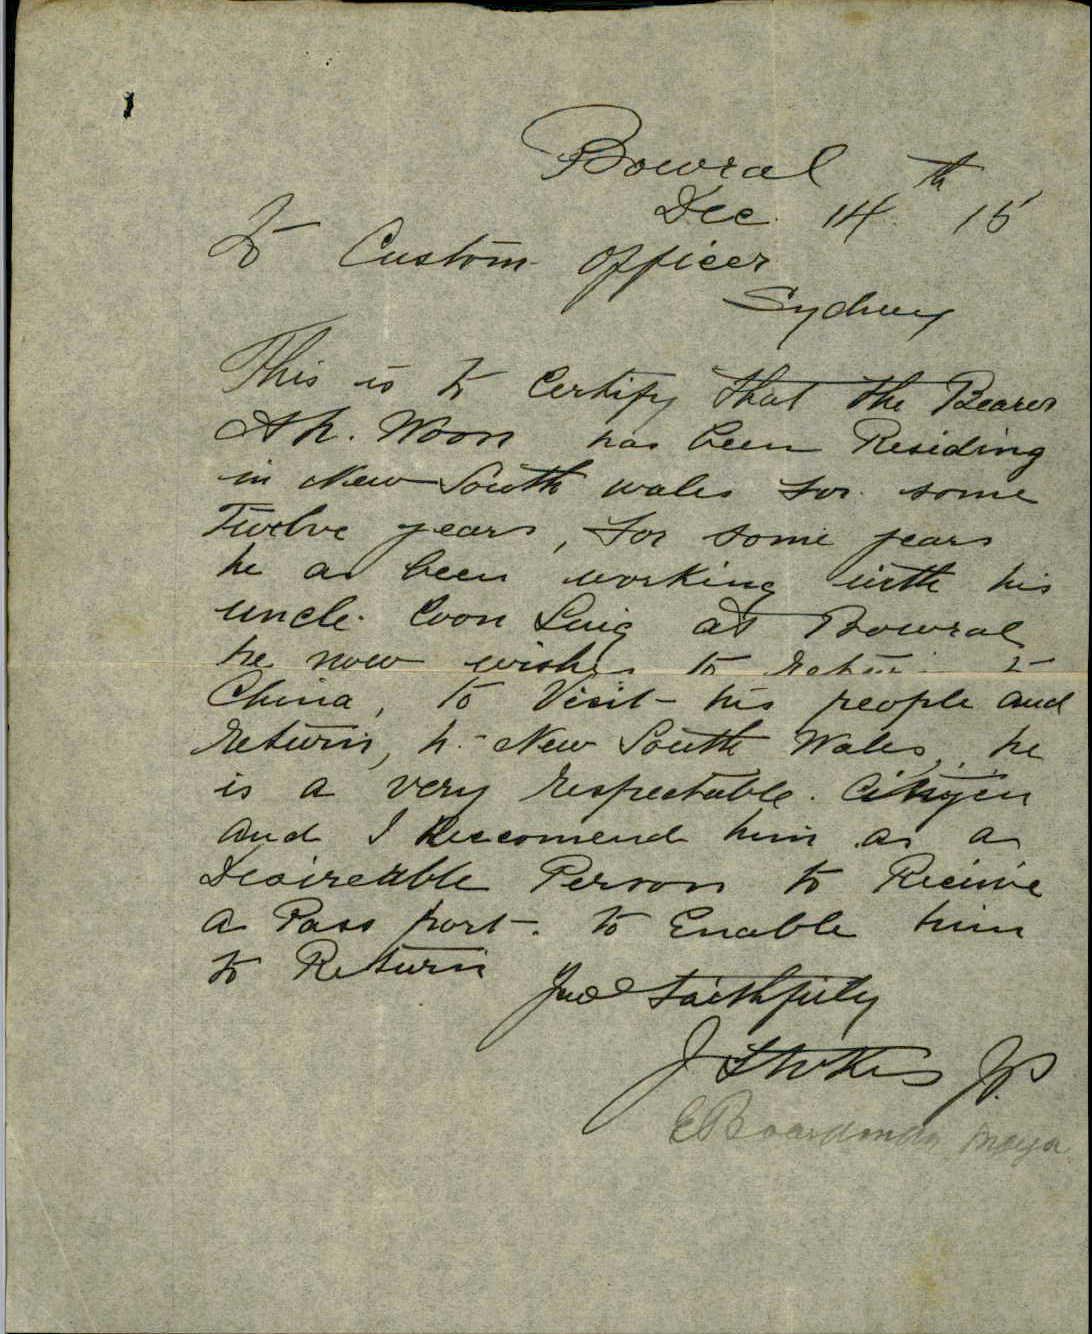 Bowral
Dec. 14th 15
To Custom Officer
Sydney
This is to Certify that the Bearer
Ah. Woon has been Residing
in New South wales for some
Twelve years, for some years
he as been working with his
uncle. Coon Luig at Bowral
he now wishes to return to
China, to Visit his people and
return, to New South Wales, he
is a very respectable. Citizen
and I Reccomend him as a
Desireable Person to Recieve
a Pass port. to Enable him
to Return
Faithfully
J Stokes J.P.
E Boardman